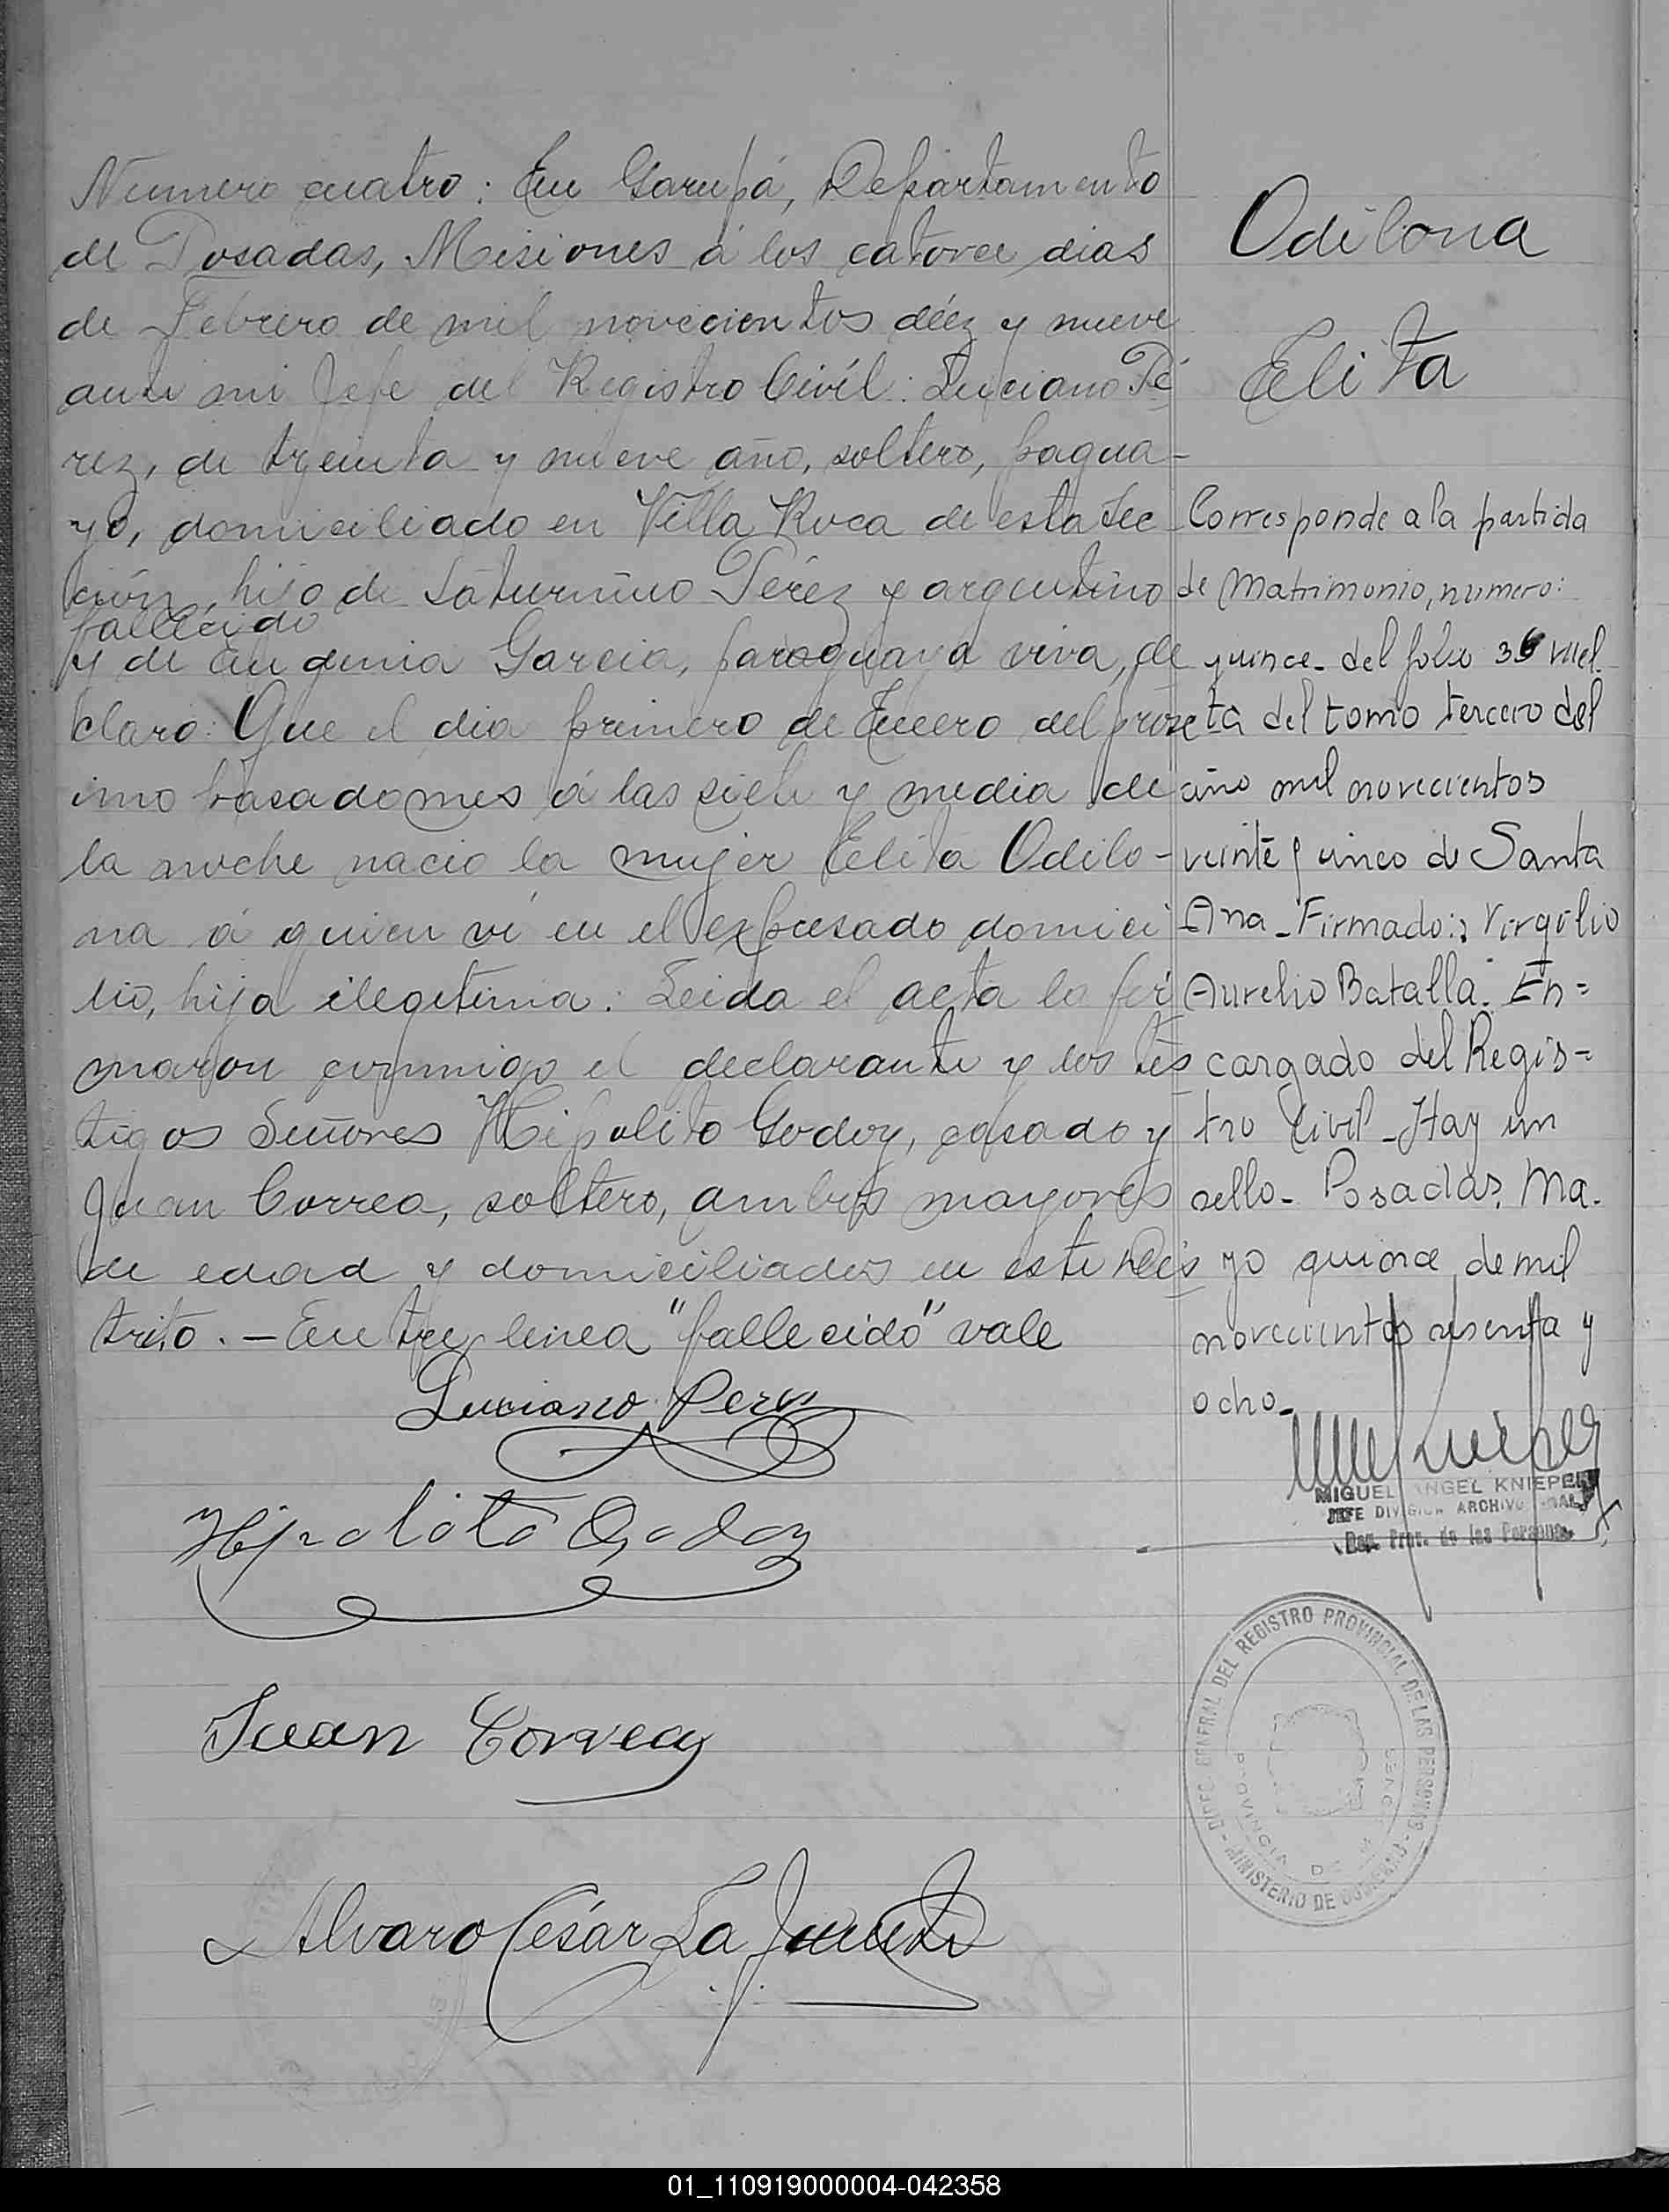 Numero cuatro: En Garupá, Departamento
de Posadas, Misiones á los catorce dias
de Febrero de mil novecientos diéz y nueve
ante mi Jefe del Registro Civíl: Luciano Pé
rez, de treinta y nueve año, soltero, pagua-
yo, domiciliado en Villa Roca de esta sec
ción, hijo de Saturnino Pérez y argentino
fallecido
y de Eugenia Garcia, paraguaya viva, de
claro: Que el dia primero de Enero del prox
imo pasado mes á las siete y media de
la noche nacio la mujer Elita Odilo-
na á quien vi en el expresado domici
lio, hija ilegitima: Leida el acta la fir
maron conmigo el declarante y los tes
tigos Señores Hipolito Godoy, casado y
Juan Correa, soltero, ambos mayores
de edad y domiciliados en este Dis
trito. — Entre linea "fallecido" vale
Luciano Perez
Hipolito Godoy
Juan Correa
Alvaro César La
Odilona
Elita
Corresponde a la partida
de Matrimonio, numero:
quince- del folio 36 vuel
ta del tomo tercero del
año mil novecientos
veinte y cinco de Santa
Ana- Firmado: Virgilio
Aurelio Batalla. En=
cargado del Regis=
tro Civil- Hay un
sello- Posadas, Ma-
yo quince de mil
novecientos sesenta y
ocho-
MIGUEL ANGEL KNIEPER
JEFE DIVISION ARCHIVO GRAL
Dep. Prov. de las Personas
DIREC. GENERAL DEL REGISTRO PROVINCIAL DE LAS PERSONAS - MINISTERIO DE GOBIERNO -
PROVINCIA DE MISIONES
01_110919000004-042358